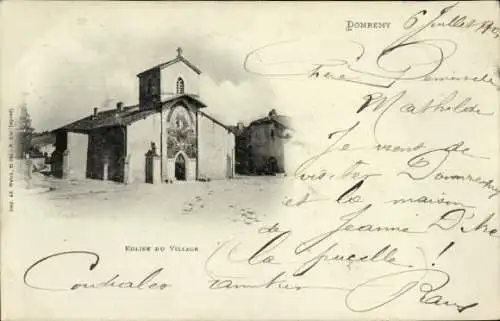 DOMREMY
6 Juillet
Chère Demoiselle
Mathilde
Je viens de
visiter Domremy
et la maison
de Jeanne D'Arc
(la pucelle)!
EGLISE DU VILLAGE
Cordiales amitiés